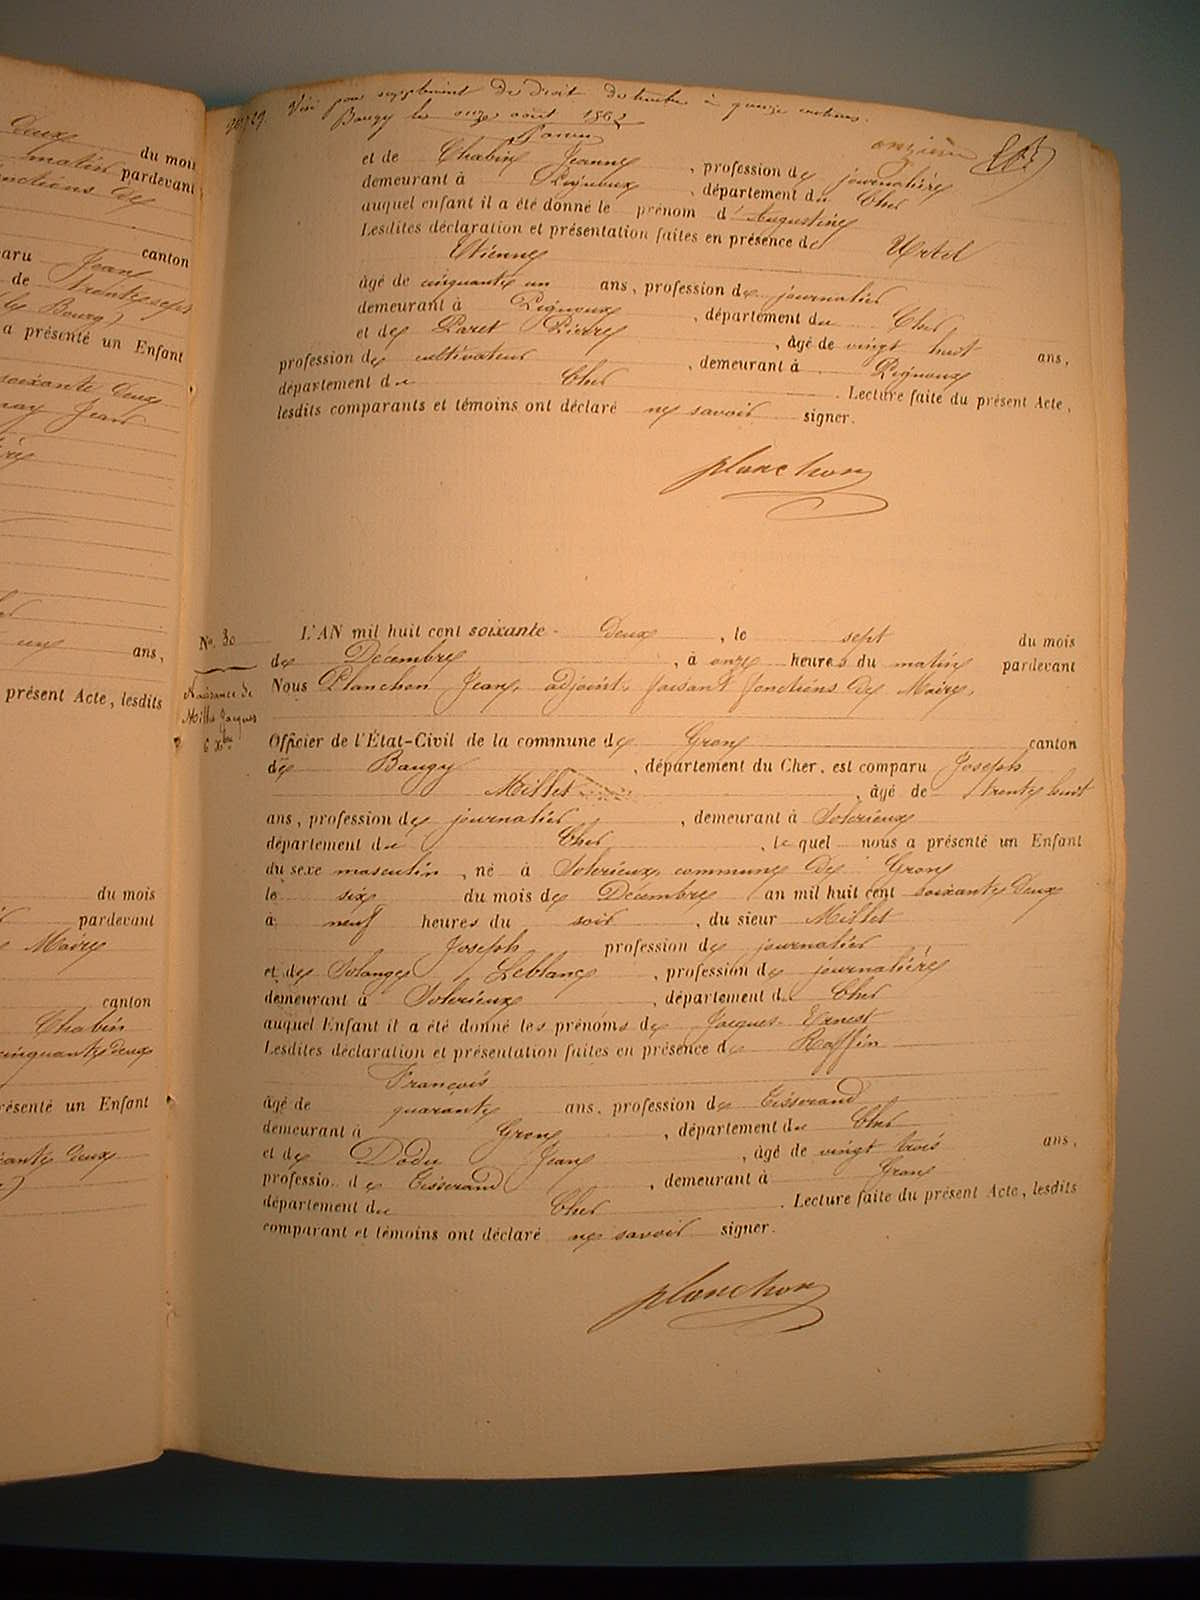 deux
du mois
matin pardevant
fonctions de
canton
paru Jean
de trente sept
(le Bourg)
a présenté un Enfant
soixante deux
Jean
ans,
présent Acte, lesdits
du mois
pardevant
Maire
canton
Chabin
cinquante deux
présenté un Enfant
soixante deux
Visé pour supplément de droit de timbre à quinze centimes.
Baugy le onze août 1862
onzième
et de Chabin Jeanne, profession de journalière
demeurant à Pigneux, département du Cher
auquel enfant il a été donné le prénom d'Augustine
Lesdites déclaration et présentation faites en présence de Urtel
Etienne
âgé de cinquante un ans, profession de journalier
demeurant à Pigneux, département du Cher
et de Paret Pierre, âgé de vingt huit ans,
profession de cultivateur, demeurant à Pigneux
département du Cher. Lecture faite du présent Acte,
lesdits comparants et témoins ont déclaré ne savoir signer.
planchon
No. 30
Naissance de
Millet Jacques
6 Xbre
L'AN mil huit cent soixante deux, le sept du mois
de Décembre, à onze heures du matin pardevant
Nous Planchon Jean, adjoint, faisant fonctions de Maire,
Officier de l'État-Civil de la commune de Gron canton
de Baugy, département du Cher, est comparu Joseph
Millet, âgé de trente huit
ans, profession de journalier, demeurant à Solerieux
département du Cher, lequel nous a présenté un Enfant
du sexe masculin, né à Solerieux, commune de Gron
le six du mois de Décembre an mil huit cent soixante deux
à neuf heures du soir, du sieur Millet
Joseph profession de journalier
et de Solange Leblanc, profession de journalière
demeurant à Solerieux, département du Cher
auquel Enfant il a été donné les prénoms de Jacques Ernest
Lesdites déclaration et présentation faites en présence de Raffin
François
âgé de quarante ans, profession de Tisserand
demeurant à Gron, département du Cher
et de Dodu Jean, âgé de vingt trois ans,
profession de Tisserand, demeurant à Gron
département du Cher. Lecture faite du présent Acte, lesdits
comparant et témoins ont déclaré ne savoir signer.
planchon